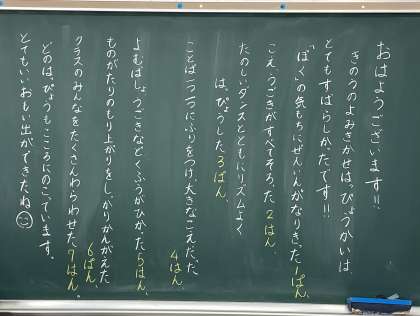 おはようございます!!
きのうのよみきかせはっぴょうかいは、
とてもすばらしかったです!!
「ぼく」の気もちにぜんいんがなりきった1ぱん、
こえ、うごきがすべてそろった2はん、
たのしいダンスとともにリズムよく
は、ぴょうした3ぱん、
ことば一つ一つにふりをつけ大きなこえだった
4はん、
よむばしょ、うごきなどくふうがひかった5はん、
ものがたりのもり上がりをしっかりかんがえた
6ぱん、
クラスのみんなをたくさんわらわせた7はん。
どのはっぴょうもこころにのこっています。
とてもいいおもい出ができたね